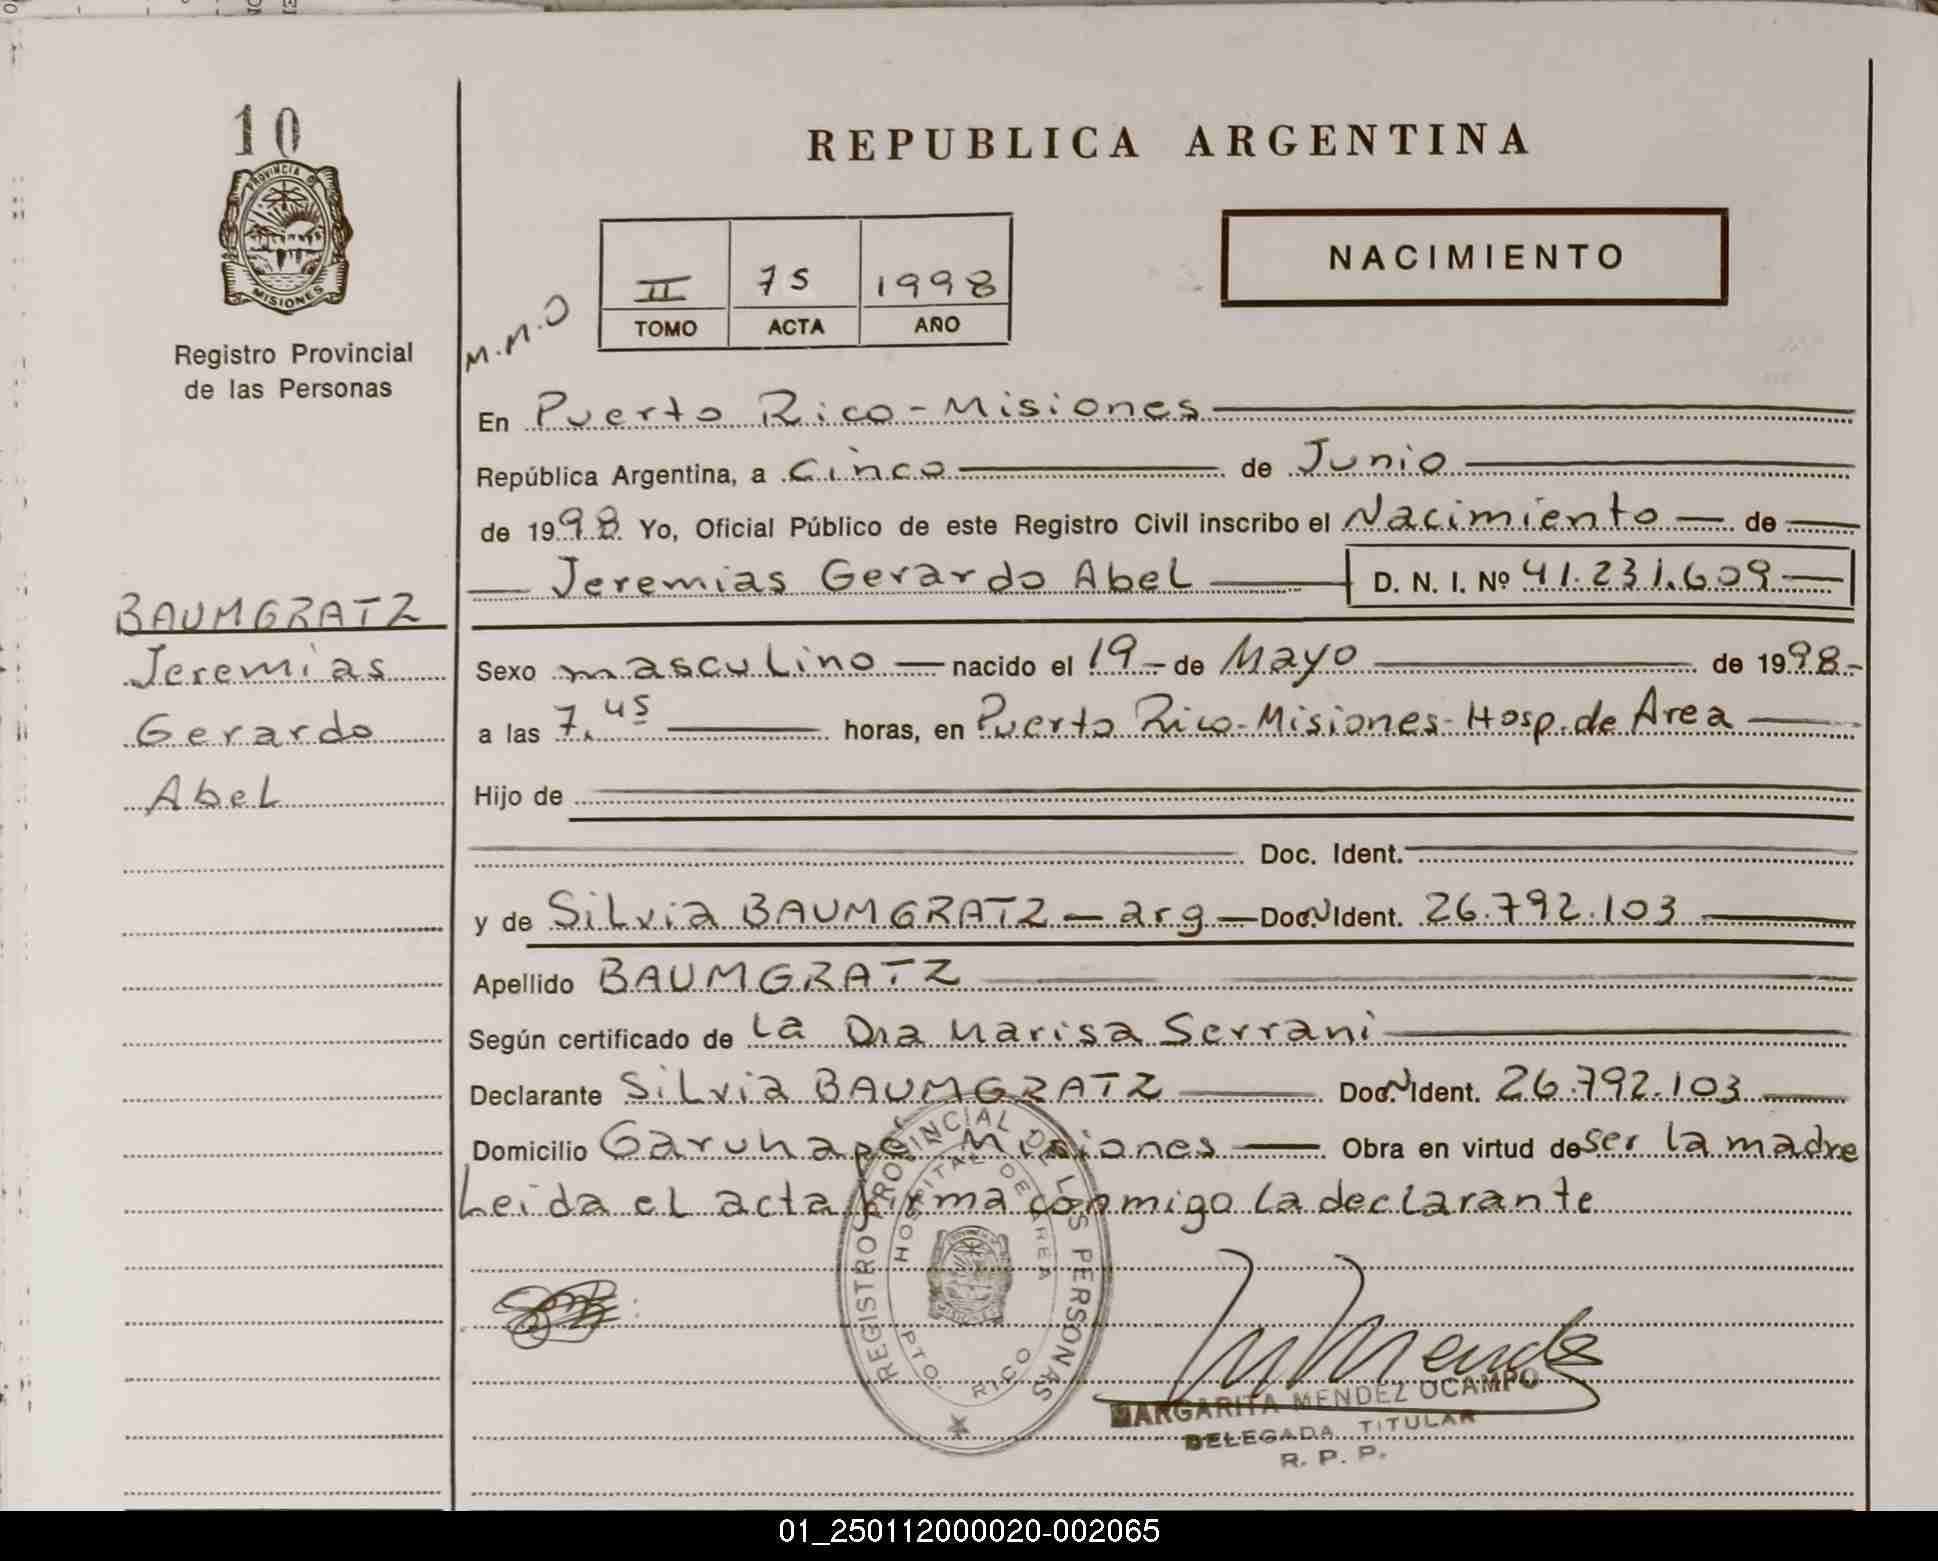 10
PROVINCIA D
MISIONES
Registro Provincial
de las Personas
BAUMGRATZ
Jeremias
Gerardo
Abel
REPUBLICA ARGENTINA
NACIMIENTO
M.M.O
II 75 1998
TOMO ACTA AÑO
En Puerto Rico - Misiones
República Argentina, a Cinco de Junio
de 1998 Yo, Oficial Público de este Registro Civil inscribo el Nacimiento de
Jeremias Gerardo Abel D. N. I. Nº 41.231.609
Sexo masculino nacido el 19 de Mayo de 1998
a las 7,45 horas, en Puerto Rico-Misiones-Hosp.de Area
Hijo de
Doc. Ident.
y de Silvia BAUMGRATZ - arg - Doc. Ident. 26.792.103
Apellido BAUMGRATZ
Según certificado de la Dra Marisa Serrani
Declarante Silvia BAUMGRATZ Doc. Ident. 26.792.103
Domicilio Garuhapé Misiones Obra en virtud de ser la madre
Leida el acta firma conmigo la declarante
REGISTRO PROVINCIAL DE LAS PERSONAS
HOSPITAL DE AREA
PTO. RICO
MARGARITA MENDEZ OCAMPO
DELEGADA TITULAR
R. P. P.
01_250112000020-002065